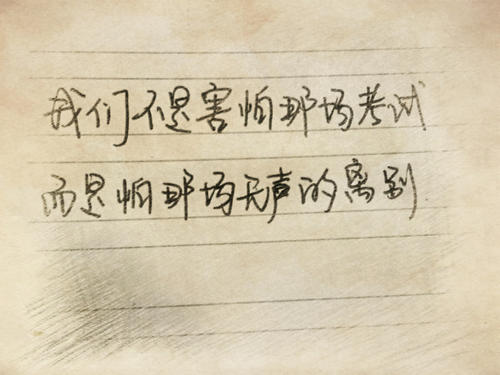 我们不是害怕那场考试
而是怕那场无声的离别